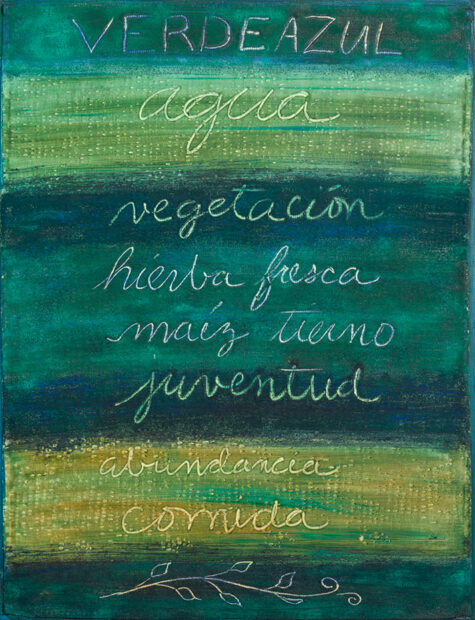 VERDEAZUL
agua
vegetación
hierba fresca
maíz tierno
juventud
abundancia
comida